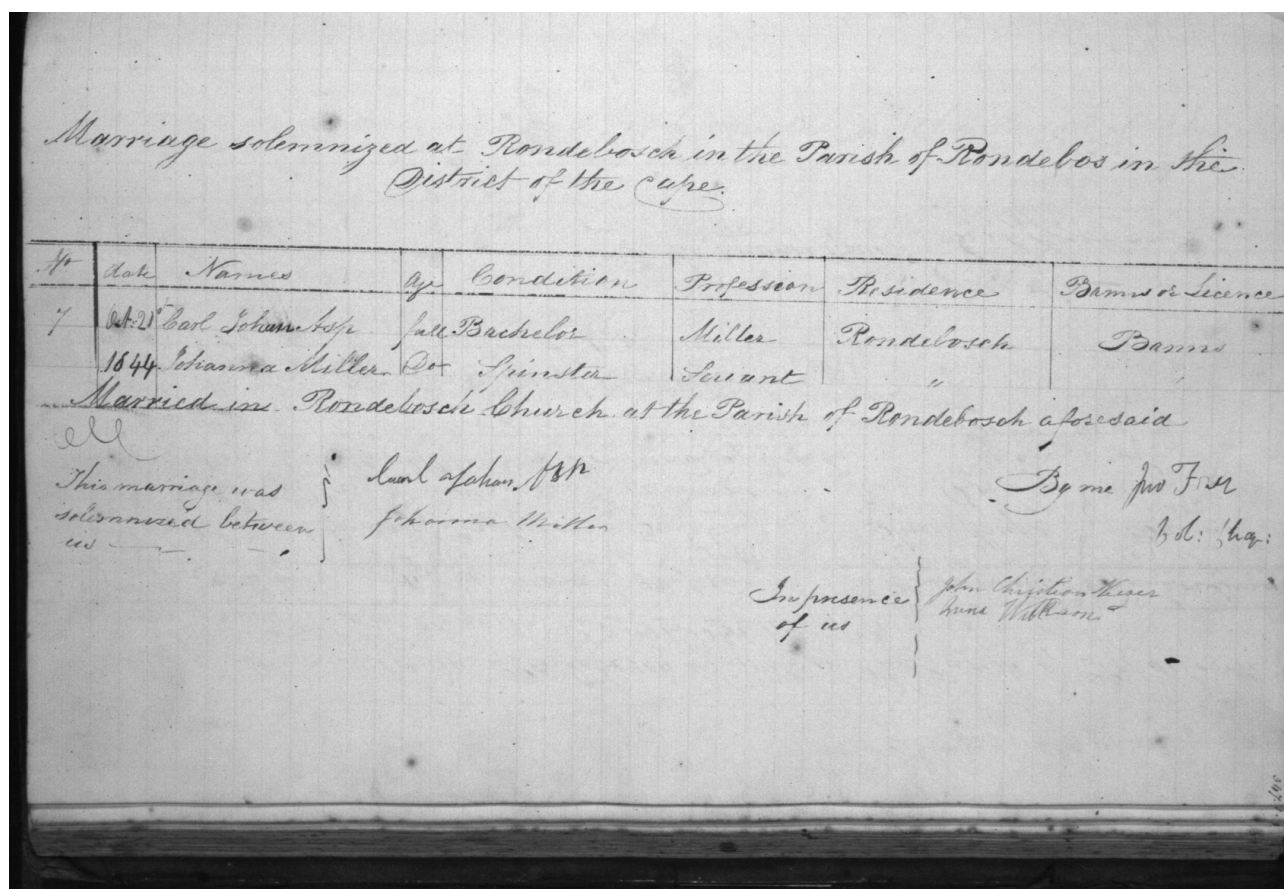 Marriage solemnized at Rondebosch in the Parish of Rondebos in the
District of the Cape.
No date Names Age Condition Profession Residence Banns or Licence
7 Oct: 21st Carl Johan Asp full Bachelor Miller Rondebosch Banns
1844 Johanna Miller Do Spinster Servant "
Married in Rondebosch Church at the Parish of Rondebosch aforesaid
This marriage was
solemnized between
us
Carl Johan Asp
Johanna Miller
By me Jno
Col: Chap:
In presence
of us
John Christian